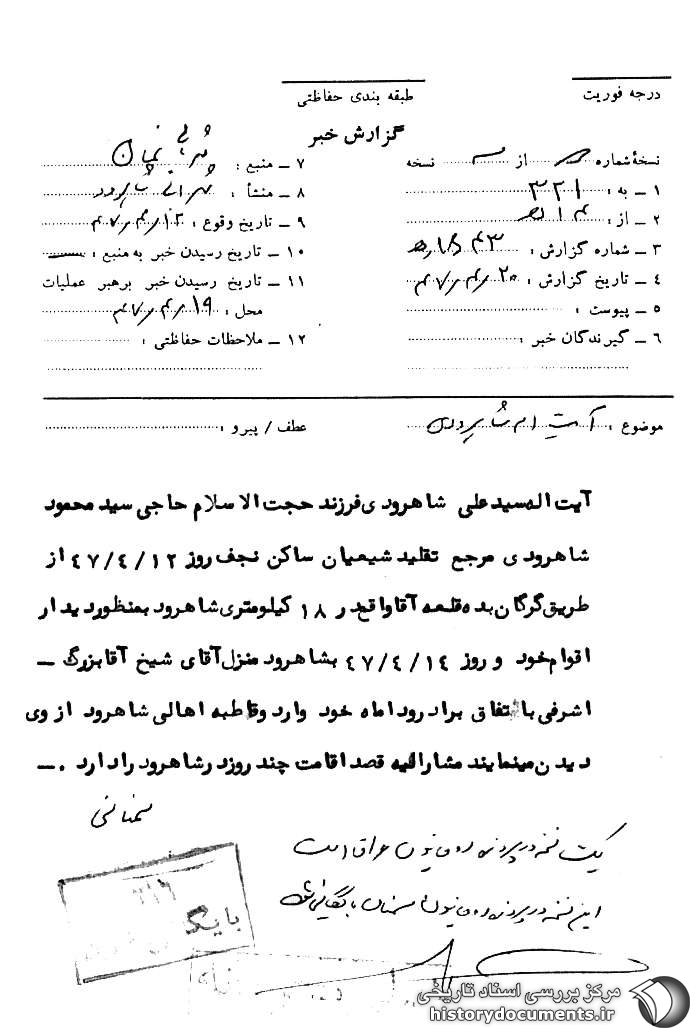 درجه فوریت
طبقه بندی حفاظتی
گزارش خبر
نسخهٔ شماره از نسخه
۱ ــ به : ۳۲۱
۲ ــ از :
۳ ــ شماره گزارش :
۴ ــ تاریخ گزارش : ۴۷٫۴٫۲۰
۵ ــ پیوست :
۶ ــ گیرندگان خبر :
۷ ــ منبع :
۸ ــ منشأ :
۹ ــ تاریخ وقوع : ۴۷٫۴٫۱۲
۱۰ ــ تاریخ رسیدن خبر به منبع :
۱۱ ــ تاریخ رسیدن خبر برهبر عملیات
محل : ۴۷٫۴٫۱۹
۱۲ ــ ملاحظات حفاظتی :
موضوع : آیت اله شاهرودی
عطف / پیرو :
آیت اله سید علی شاهرودی فرزند حجت الاسلام حاجی سید محمود
شاهرودی مرجع تقلید شیعیان ساکن نجف روز ۴۷/۴/۱۲ از
طریق گرگان بده قلعه آقا واقع در ۱۸ کیلومتری شاهرود بمنظور دیدار
اقوام خود و روز ۴۷/۴/۱۴ بشاهرود منزل آقای شیخ آقابزرگ ــ
اشرفی باتفاق برادر و داماد خود وارد و قاطبه اهالی شاهرود از وی
دیدن مینمایند مشارالیه قصد اقامت چند روز در شاهرود را دارد .ــ
سمنانی
یک نسخه در پرونده روحانیون عراق است
این نسخه در پرونده روحانیون سمنان بایگانی شود
مرکز بررسی اسناد تاریخی
historydocuments.ir